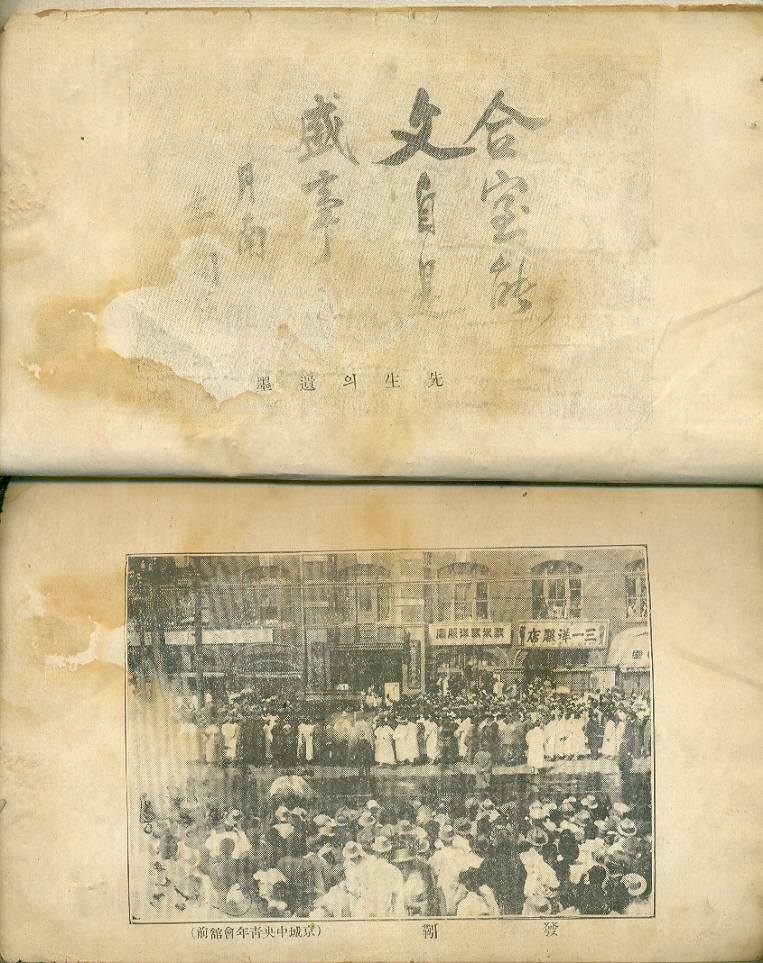 合室能
文自是
盛事
月南
先生의遺墨
三一洋服店
發靷 (京城中央靑年會舘前)